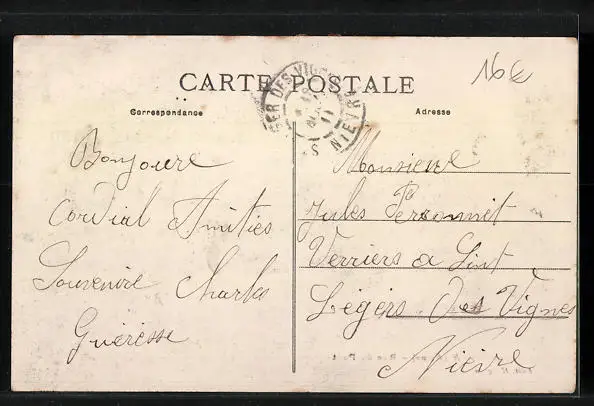 16€
CARTE POSTALE
Correspondance
Adresse
Bonjoure
Cordial Amities
Souvenire Charles
Guéresse
Monsieur
Jules Personnit
Verriers a Sint
Légers Des Vignes
Nièvre